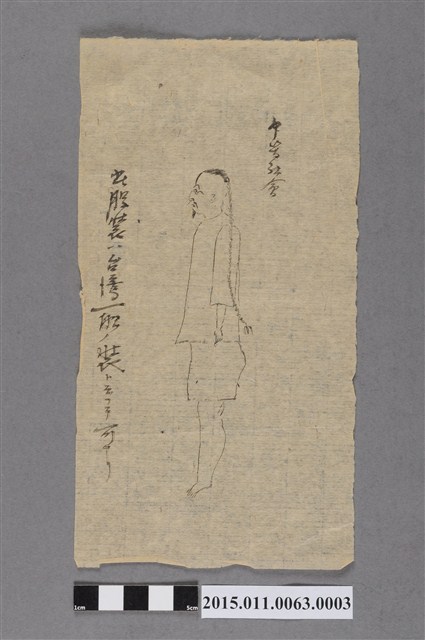 中等社会
此服装ハ台湾一般ノ装ト云フ可ナリ
1cm
5cm
2015.011.0063.0003